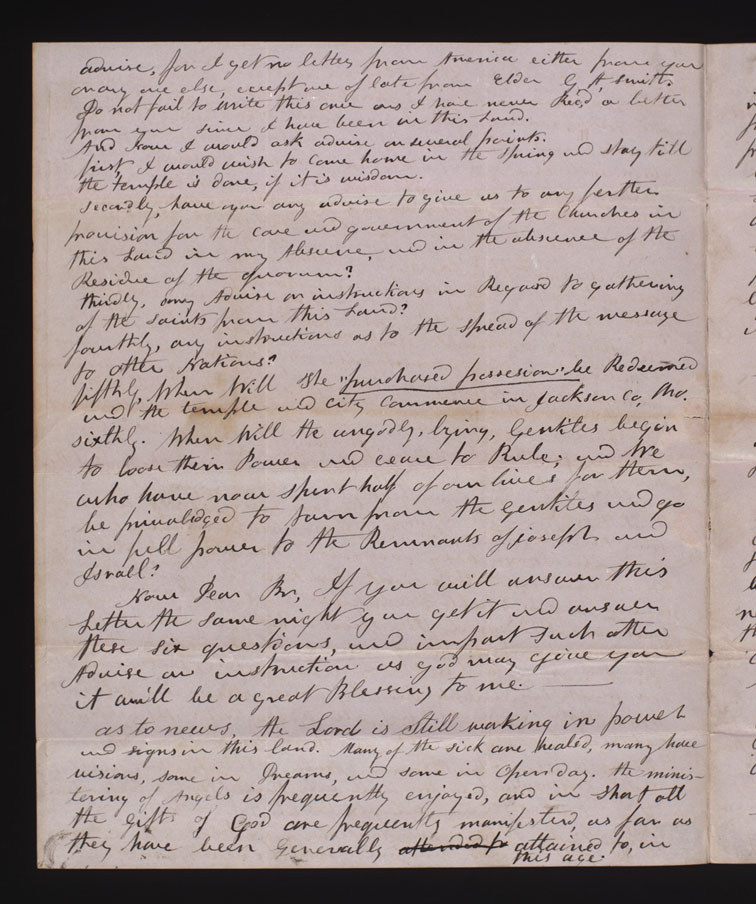 advise, for I get no letters from America either from you
or any one else, except one of late from Elder G. A. Smith.
Do not fail to write this once as I have never Recd a letter
from you since I have been in this Land.
And Now I would ask advise on several points.
first, I would wish to come home in the Spring and stay till
the temple is done, if it is wisdom.
secondly, have you any advise to give as to any ferther
provision for the care and government of the Churches in
this Land in my Absence, and in the absence of the
Residue of the quorum?
thirdly, any Advise or instructions in Regard to gathering
of the saints from this Land?
fourthly, any instructions as to the spread of the message
to other Nations?
fifthly, When Will the "purchased possesion" be Redeemed
and the temple and city commence in Jackson Co, Mo.
sixthly. When Will the ungodly, lying, Gentiles begin
to loose their Power and ceace to Rule; and We
who have now spent half of our lives for them,
be privaledged to turn from the gentiles and go
in full power to the Remnants of Joseph and
Israll?
Now Dear Br, If you will answer this
Letter the same night you get it and answer
these six questions, and impart such other
Advise or instruction as god may give you
it will be a great Blessing to me.
as to news, the Lord is still working in power
and signs in this land. Many of the sick are healed, many have
visions, some in Dreams, and some in Open day. the minis-
tering of Angels is frequently enjoyed, and in short all
the gifts of God are frequently manifested, as far as
they have been Generally attended to attained to, in
this age.